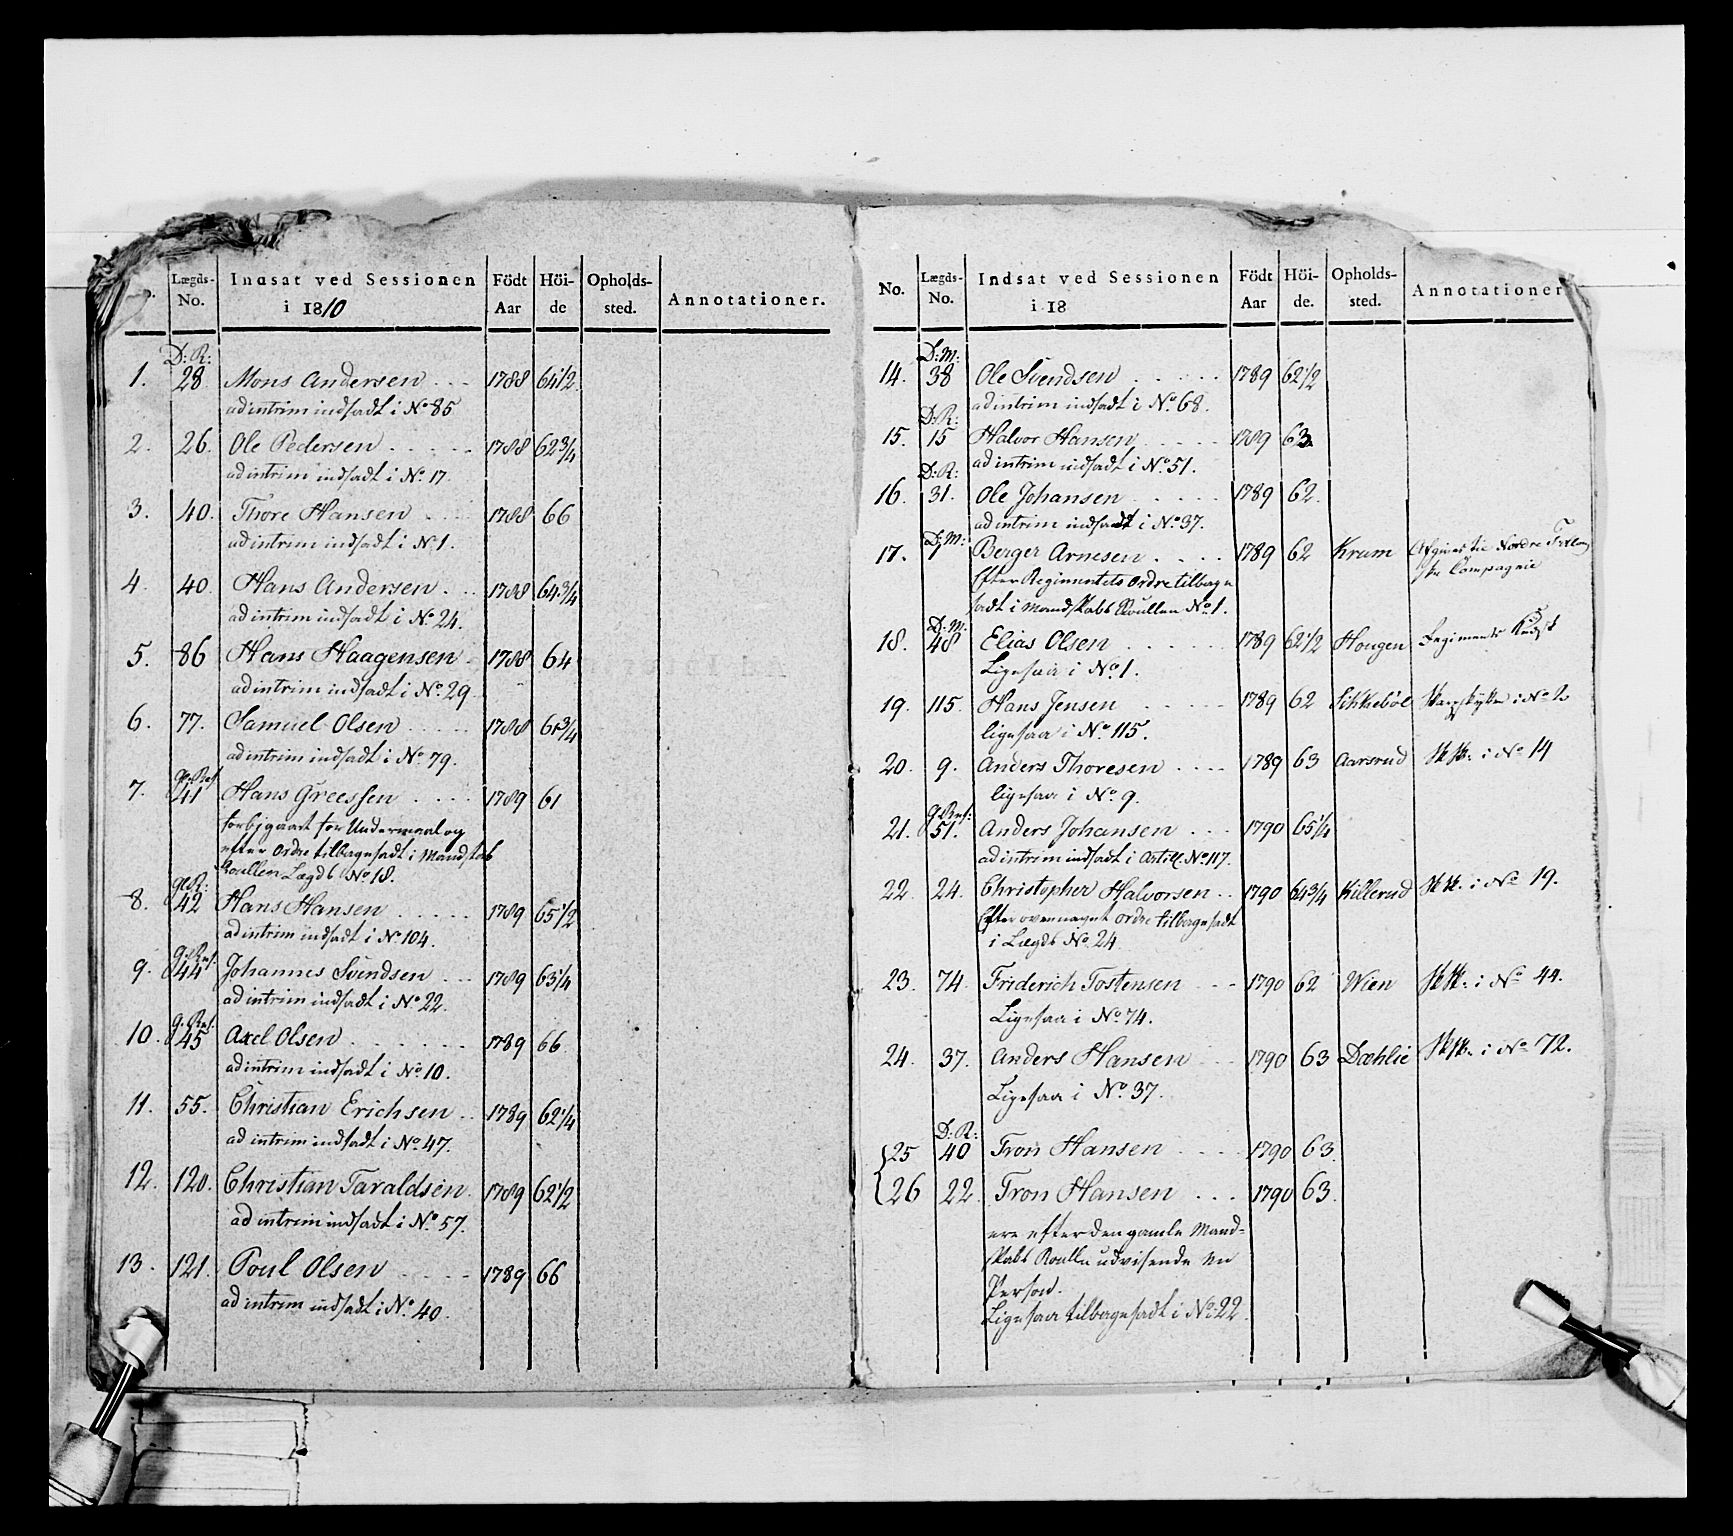 Lægds-No. Indsat ved Sessionen i 1810 Födt Aar Höi-de Opholds-sted. Annotationer.
D: R:
1. 28 Mons Andersen 1788 64 1/2
ad intrim indsadt i No 85
2. 26. Ole Pedersen 1788 62 3/4
ad intrim indsadt i No 17.
3. 40. Thore Hansen 1788 66
ad intrim indsadt i No 1.
4. 40. Hans Andersen 1788 64 3/4
ad intrim indsadt i No 24.
5. 86 Hans Haagensen 1788 64
ad intrim indsadt i No. 29
6. 77. Samuel Olsen 1788 61 3/4
ad intrim indsadt i No 79.
7. 41 Hans Greessen 1789 61
forbigaaet for Undermaal og
efter Ordre tilbagesadt i Mandskab
Roullen Lægds No 18.
8. 42 Hans Hansen 1789 65 1/2
ad intrim indsadt i No 104.
9. 44 Johannes Svendsen 1789 63 1/4
ad intrim indsadt i No 22
10. 45 Axel Olsen 1789 66
ad intrim indsadt i No 10.
11. 55. Christian Erichsen 1789 62 1/4
ad intrim indsadt i No. 47.
12. 120. Christian Taraldsen 1789 62 1/2
ad intrim indsadt i No. 57.
13. 121. Poul Olsen 1789 66
ad intrim indsadt i No. 40.
No. Lægds-No. Indsat ved Sessionen i 18 Födt Aar Höi-de. Opholds-sted. Annotationer
D: M:
14. 38 Ole Svendsen 1789 62 1/2
ad intrim indsadt i No. 68.
D: R:
15. 15 Halvor Hansen 1789 63
ad intrim indsadt i No. 51.
D: R:
16. 31. Ole Johansen 1789 62.
ad intrim indsadt i No. 37.
D: M:
17. 1 Berger Arnesen 1789 62 Krum Afgiven til Nordre
Compagnie
Efter Regimentets Ordre tilbage
sadt i Mandskabs Roullen No. 1.
D: M:
18. 48 Elias Olsen 1789 62 1/2 Hougen Regiments
Ligesaa i No. 1.
19. 115. Hans Jensen 1789 62 Sikkebøl Skarpskytter i No 2
ligesaa i No. 115.
20. 9. Anders Thoresen 1789 63 Aarsrud Sk Sk. i No 14
ligesaa i No. 9.
21. 51. Anders Johansen 1790 65 1/4
ad intrim indsadt i Artill. No. 117.
22. 24. Christopher Halvorsen 1790 64 3/4 Killerud Sk Sk. i No 19.
Efter ovennævnt Ordre tilbagesadt
i Lægds No. 24
23. 74. Friderich Tostensen 1790 62 Wien Sk Sk. i No 44.
Ligesaa i No. 74.
24. 37. Anders Hansen 1790 63 Dæhlie Sk Sk. i No 72.
Ligesaa i No. 37.
D: R:
25 40 Tron Hansen 1790 63.
26 22. Tron Hansen 1790 63.
ere efter den gamle Mand-
skabs Roulle udvisende en
Person.
Ligesaa tilbagesadt i No. 22.